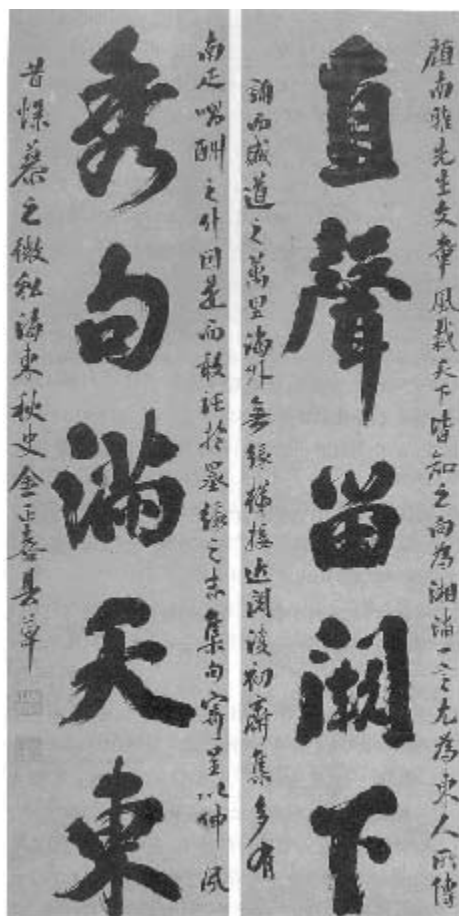 顧南雅先生文章風裁天下皆知之向為湘浦一言尤為東人所傳
直聲留闕下
誦而感道之萬里海外無緣梯接近閱復初齋集多有
南疋唱酬之什因是而敢託於墨緣之末集句寄呈以伸夙
秀句滿天東
昔憬慕之微私海東秋史金正喜具草